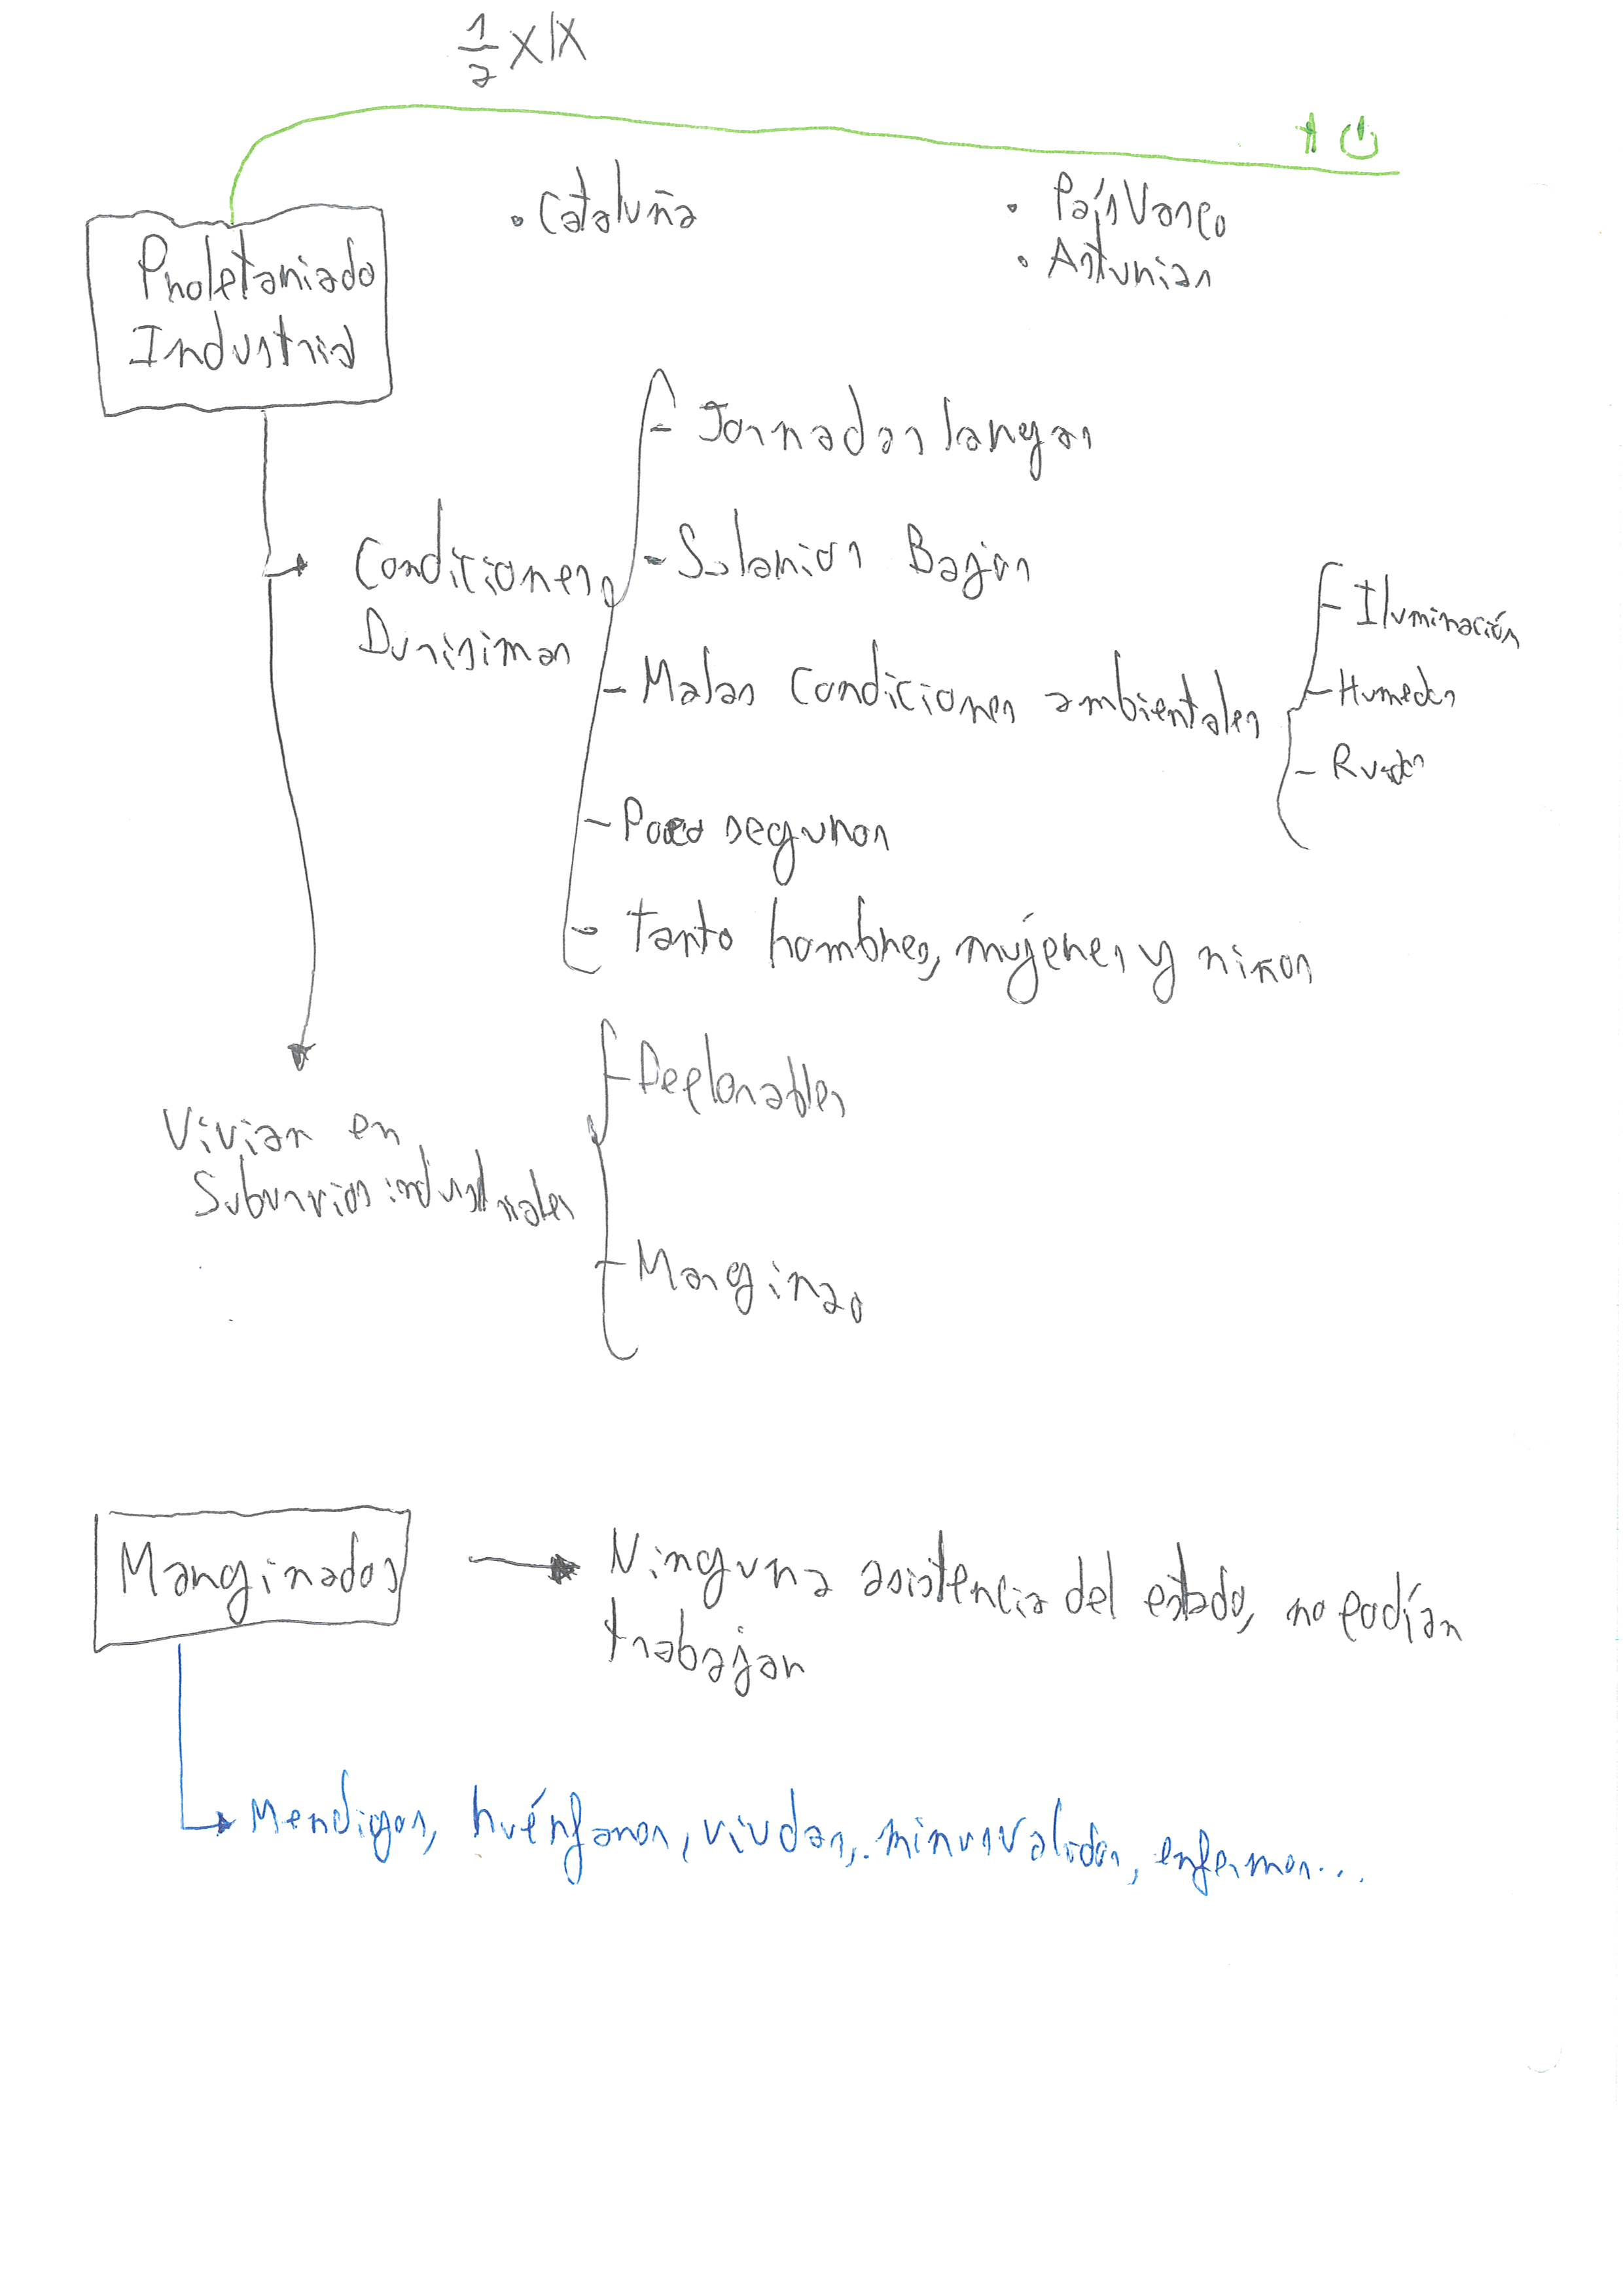 1/2 XIX
+
• Cataluña
• País Vasco
• Asturias
Proletariado
Industrial
- Jornadas largas
Condiciones
Durisimas
- Salarios Bajos
- Malas condiciones ambientales
- Iluminación
- Humedas
- Ruidos
- Poco seguros
- Tanto hombres, mujeres y niños
Vivian en
Suburvios industriales
- Deplorables
- Margina
Marginados
Ninguna asistencia del estado, no podían
trabajar
Mendigos, huérfanos, viudas, minusvalidos, enfermos...